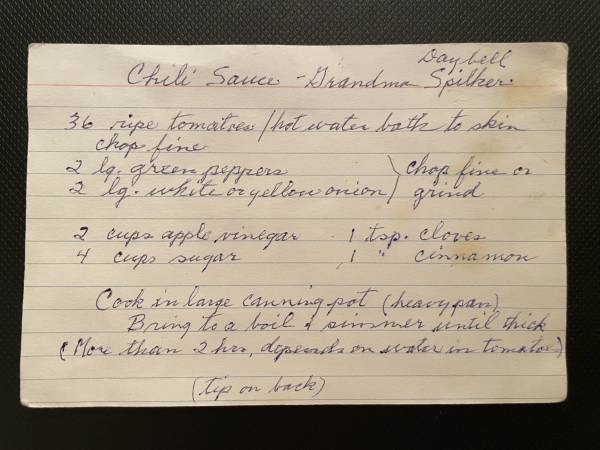 Daybell
Chili Sauce - Grandma Spilker
36 ripe tomatoes / hot water bath to skin
chop fine
2 lg. green peppers } chop fine or
2 lg. white or yellow onion } grind
2 cups apple vinegar 1 tsp. cloves
4 cups sugar 1 " cinnamon
Cook in large canning pot (heavy pan)
Bring to a boil & simmer until thick
(More than 2 hrs, depends on water in tomatoes)
(tip on back)